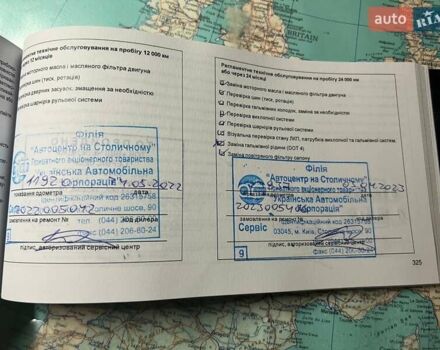 auto RIA
BRITAIN
технічне обслуговування на пробігу 12 000 км
12 місяці
моторного масла і масляного фільтра двигуна
шин (тиск, ротація)
дверних засувок, змащення за необхідністю
шарнірів рульової системи
Філія
"Автоцентр на Столичному"
Приватного акціонерного товариства
Українська Автомобільна
Корпорація"
11920
14.05.2022
показання одометра
ідентифікаційний код 26315758
2022005042
Столичне шосе, 90
замовлення на ремонт №
тел. (044)
код дилера
(044) 206-80-24
підпис, авторизований сервісний центр
Регламентне технічне обслуговування на пробігу 24 000 км
або через 24 місяці
Заміна моторного масла і масляного фільтра двигуна
Перевірка шин (тиск, ротація)
Перевірка гальмівних колодок, заміна за необхідністю
Перевірка вихлопної системи
Перевірка шарнірів рульової системи
Візуальна перевірка стану ЛКП, патрубків вихлопної системи
Заміна гальмівної рідини (DOT 4)
Заміна повітряного фільтру салону
Філія
"Автоцентр на Столичному"
Приватного акціонерного товариства
Українська Автомобільна
Корпорація"
ідентифікаційний код 26315758
замовлення на ремонт №
Сервіс
03045, м. Київ, Столичне шосе, 90
факс (044) 206-80-24
9
підпис, авторизований сервісний центр
325